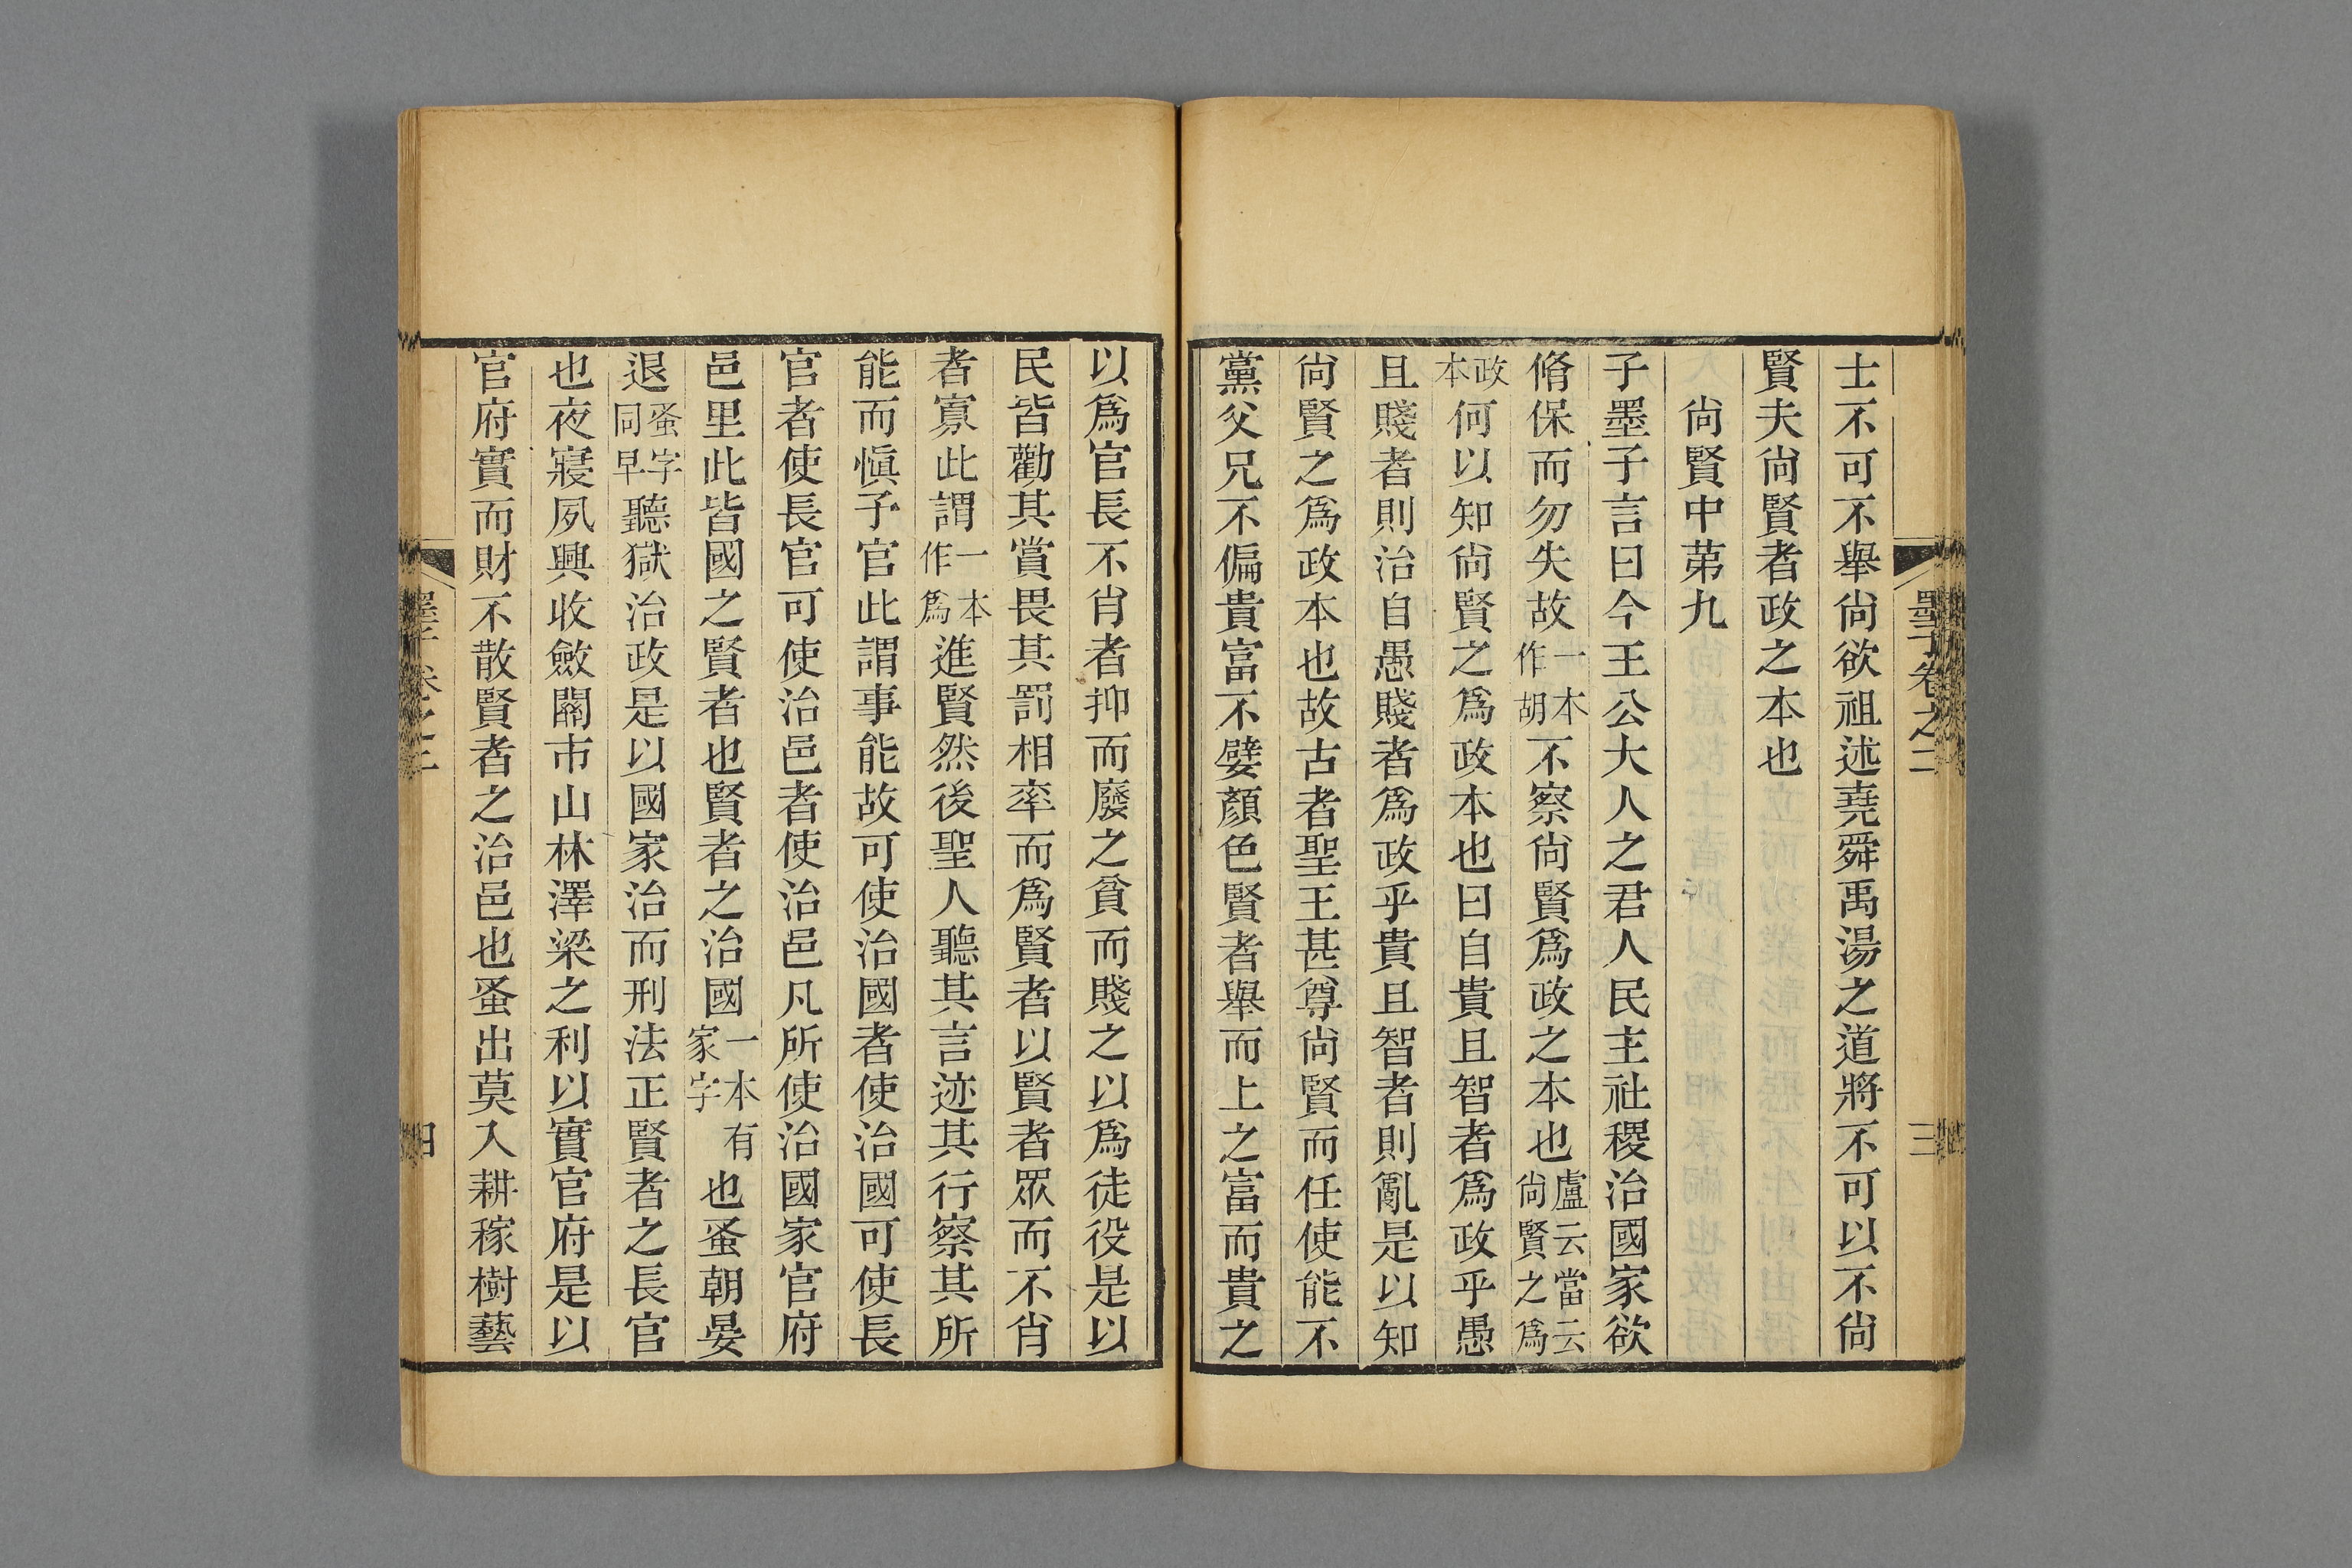 墨子卷之二
三
士不可不舉尙欲祖述堯舜禹湯之道將不可以不尙
賢夫尙賢者政之本也
尙賢中苐九
子墨子言曰今王公大人之君人民主社稷治國家欲
脩保而勿失故一本作胡不察尙賢爲政之本也盧云當云尙賢之爲
政本何以知尙賢之爲政本也曰自貴且智者爲政乎愚
且賤者則治自愚賤者爲政乎貴且智者則亂是以知
尙賢之爲政本也故古者聖王甚尊尙賢而任使能不
黨父兄不偏貴富不嬖顏色賢者舉而上之富而貴之
以爲官長不肖者抑而廢之貧而賤之以爲徒役是以
民皆勸其賞畏其罰相率而爲賢者以賢者眾而不肖
者寡此謂一本作爲進賢然後聖人聽其言迹其行察其所
能而愼予官此謂事能故可使治國者使治國可使長
官者使長官可使治邑者使治邑凡所使治國家官府
邑里此皆國之賢者也賢者之治國一本有家字也蚤朝晏
退蚤字同早聽獄治政是以國家治而刑法正賢者之長官
也夜寢夙興收斂關市山林澤梁之利以實官府是以
官府實而財不散賢者之治邑也蚤出莫入耕稼樹藝
墨子卷之二
四